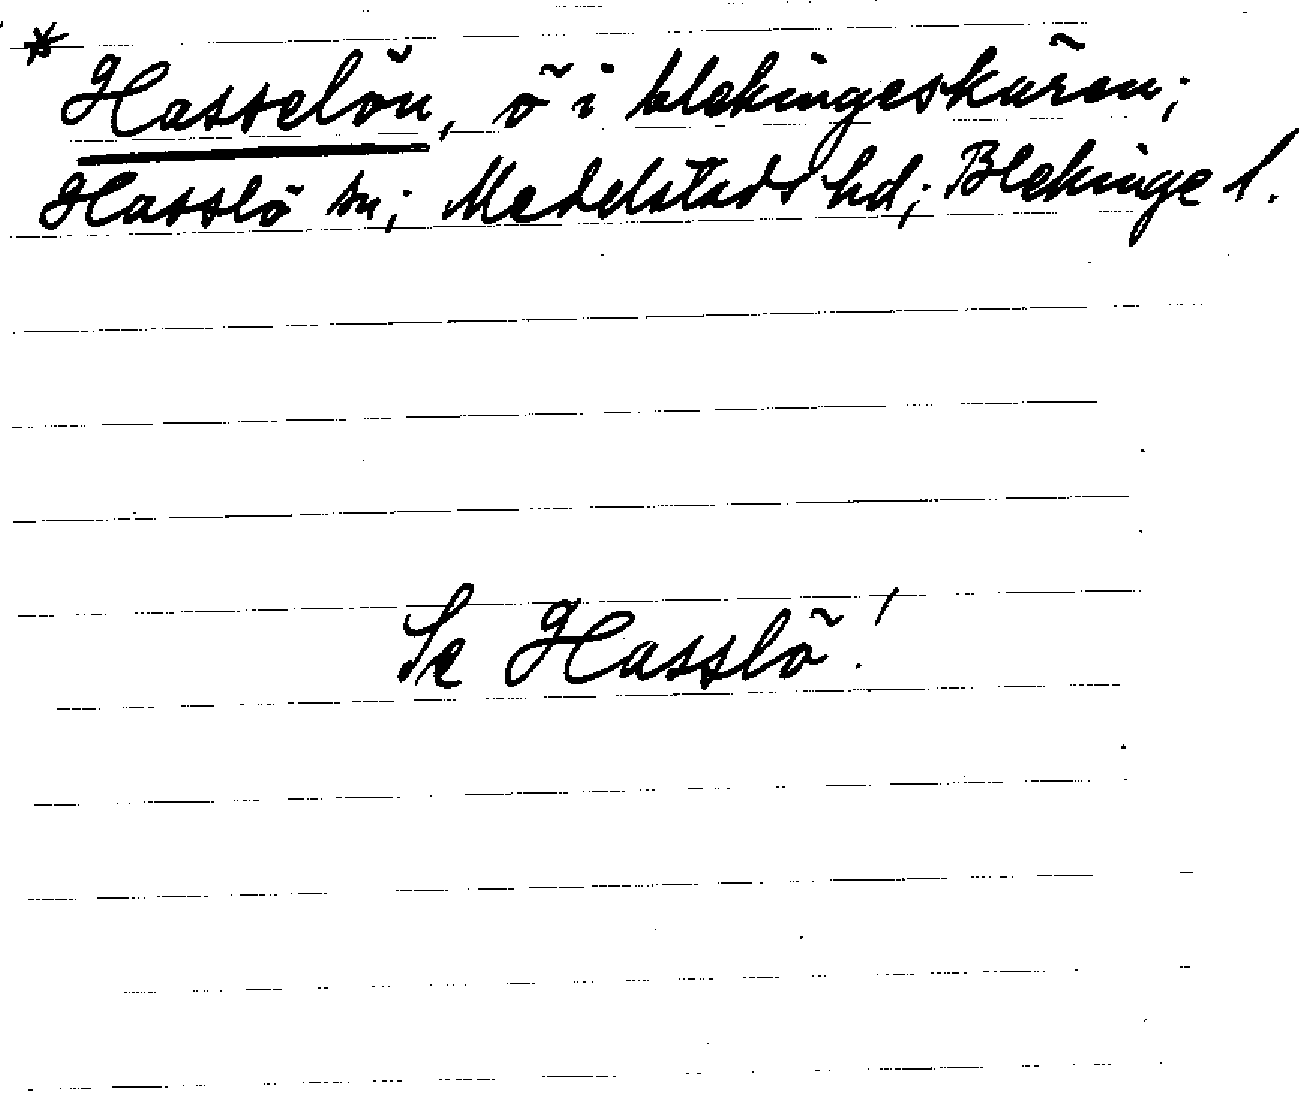 * Hasselön, ö i blekingeskären;
Hasslö sn; Medelstads hd; Blekinge l.
Se Hasslö!